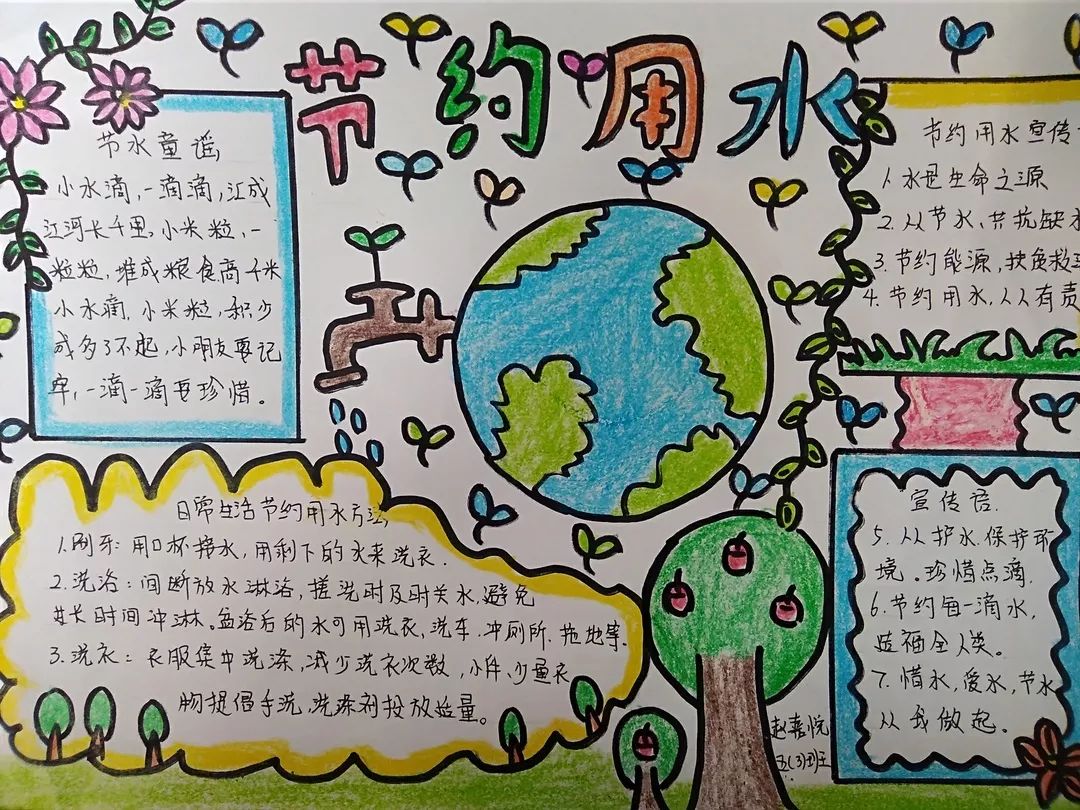 节约用水
节水童谣
小水滴，一滴滴，汇成
江河长千里，小米粒，一
粒粒，堆成粮食高千米
小水滴，小米粒，积少
成多了不起，小朋友要记
牢，一滴一滴要珍惜。
节约用水宣传
1. 水是生命之源
2. 从节水，共抗缺水
3. 节约能源，扶负救
4. 节约用水，人人有责
日常生活节约用水方法
1. 刷牙：用口杯接水，用剩下的水来洗衣.
2. 洗浴：间断放水淋浴，搓洗时及时关水，避免
过长时间冲淋。盆浴后的水可用洗衣，洗车，冲厕所.拖地等.
3. 洗衣：衣服集中洗涤，减少洗衣次数，小件，少量衣
物提倡手洗，洗涤剂投放适量。
宣传语.
5. 从护水.保护环
境。珍惜点滴.
6. 节约每一滴水，
造福全人类。
7. 惜水，爱水，节水
从我做起。
赵嘉悦
五(3)班